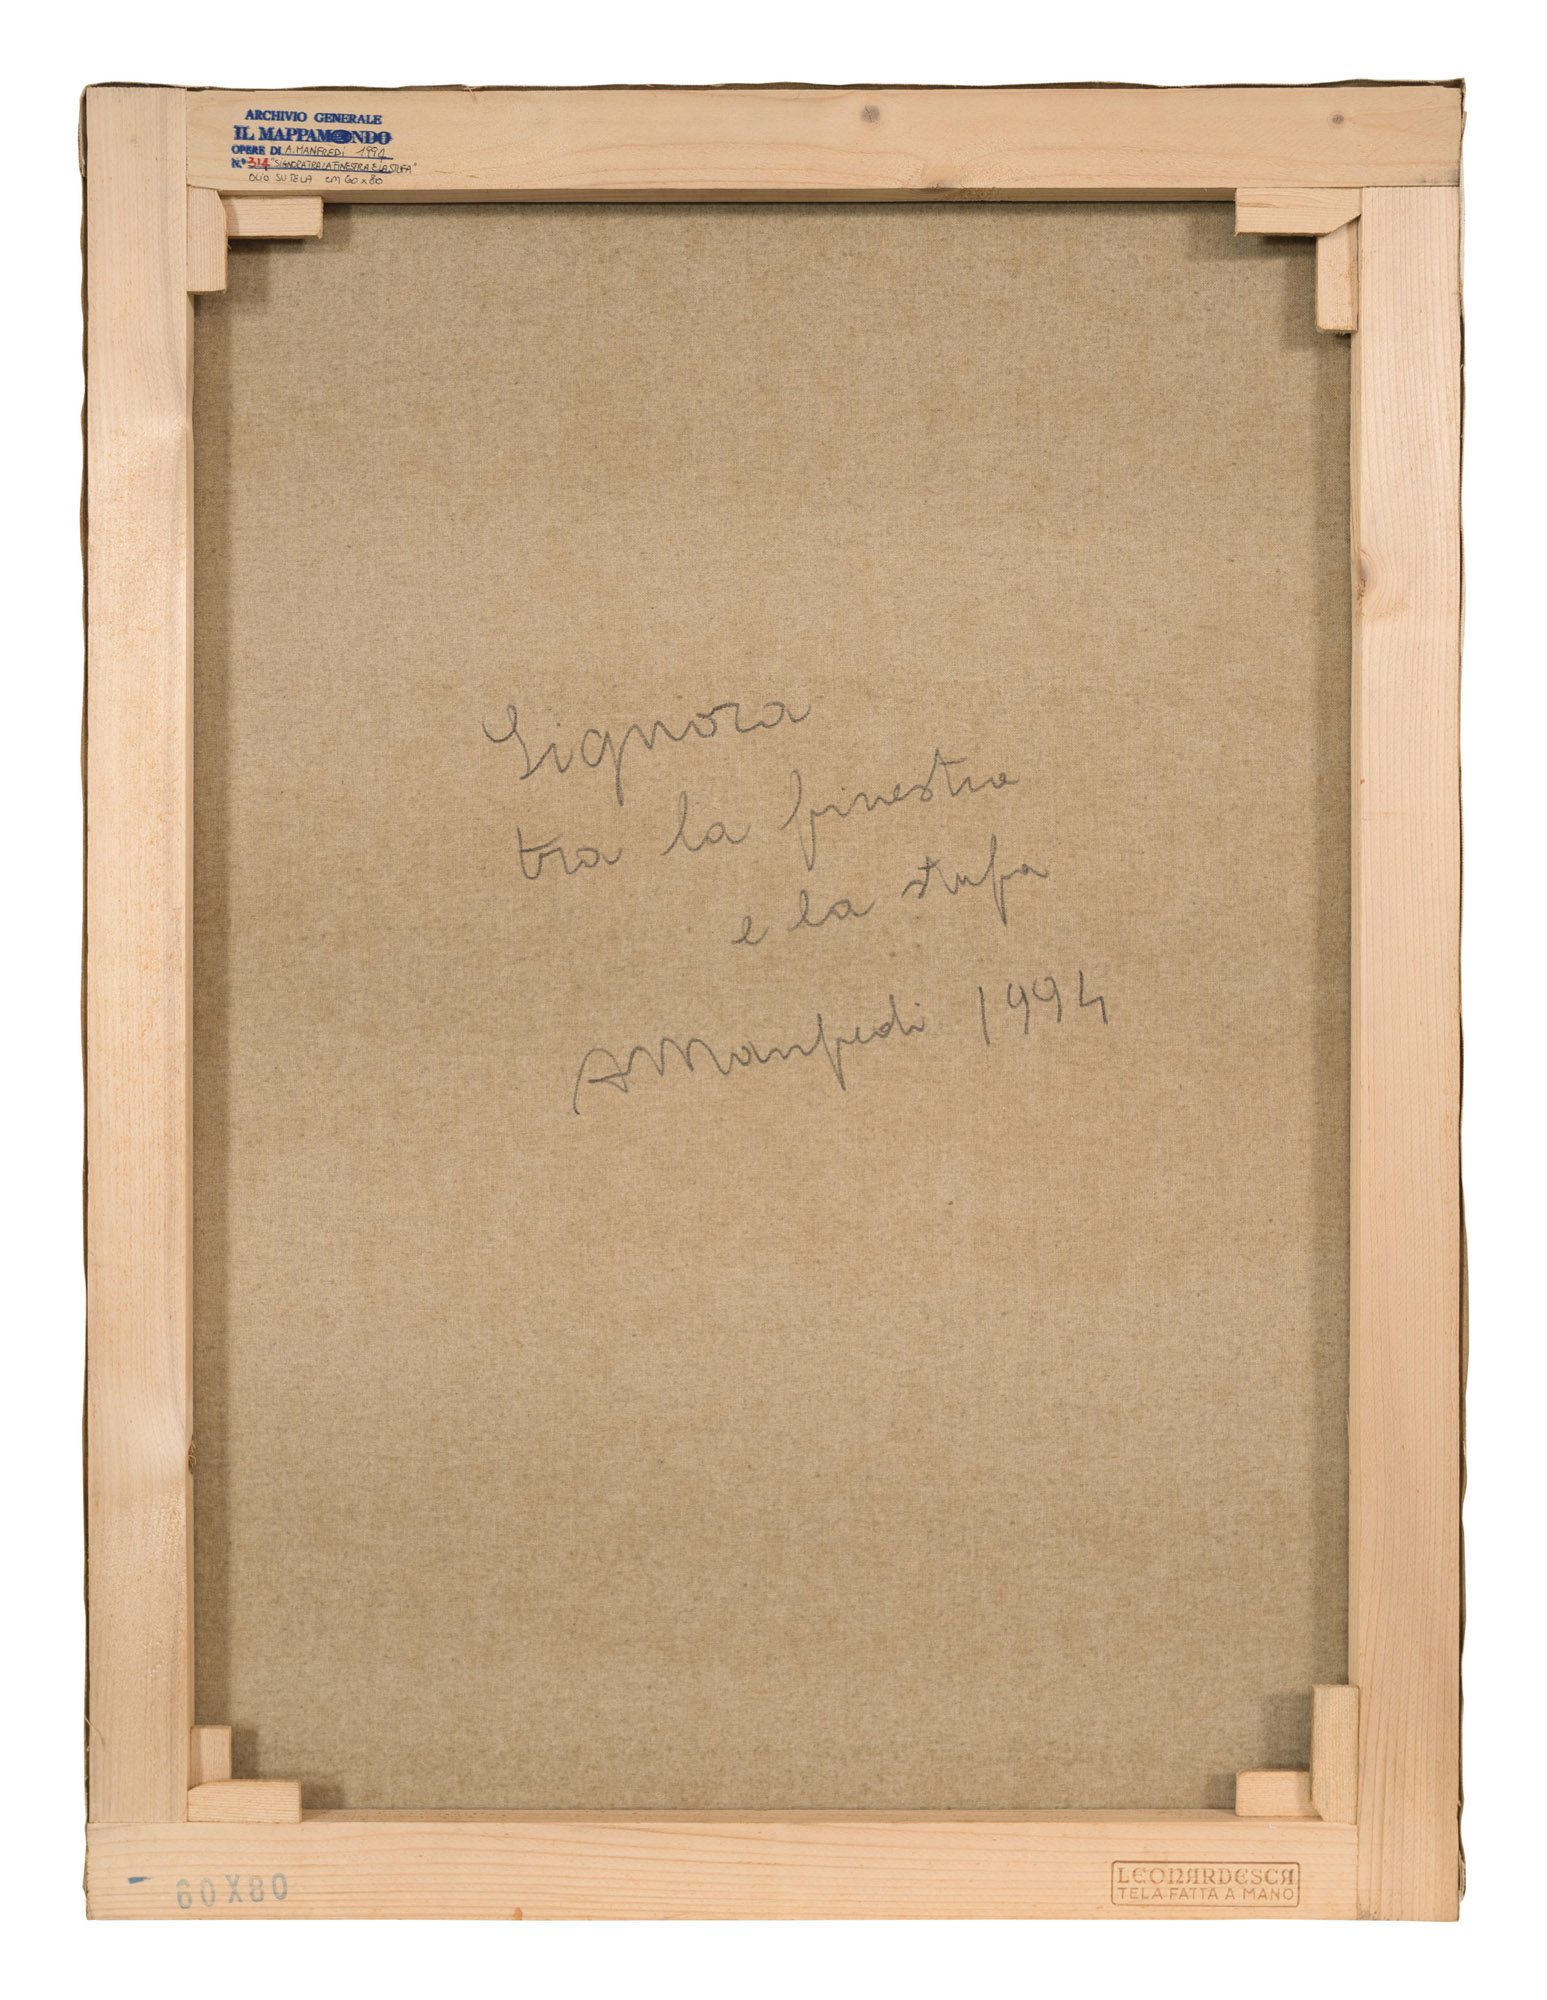 ARCHIVIO GENERALE
IL MAPPAMONDO
OPERE DI A. MANFREDI 1994
N.° 314 "SIGNORA TRA LA FINESTRA E LA STUFA"
OLIO SU TELA cm 60 x 80
Signora
tra la finestra
e la stufa
AManfredi 1994
60X80
LEONARDESCA
TELA FATTA A MANO